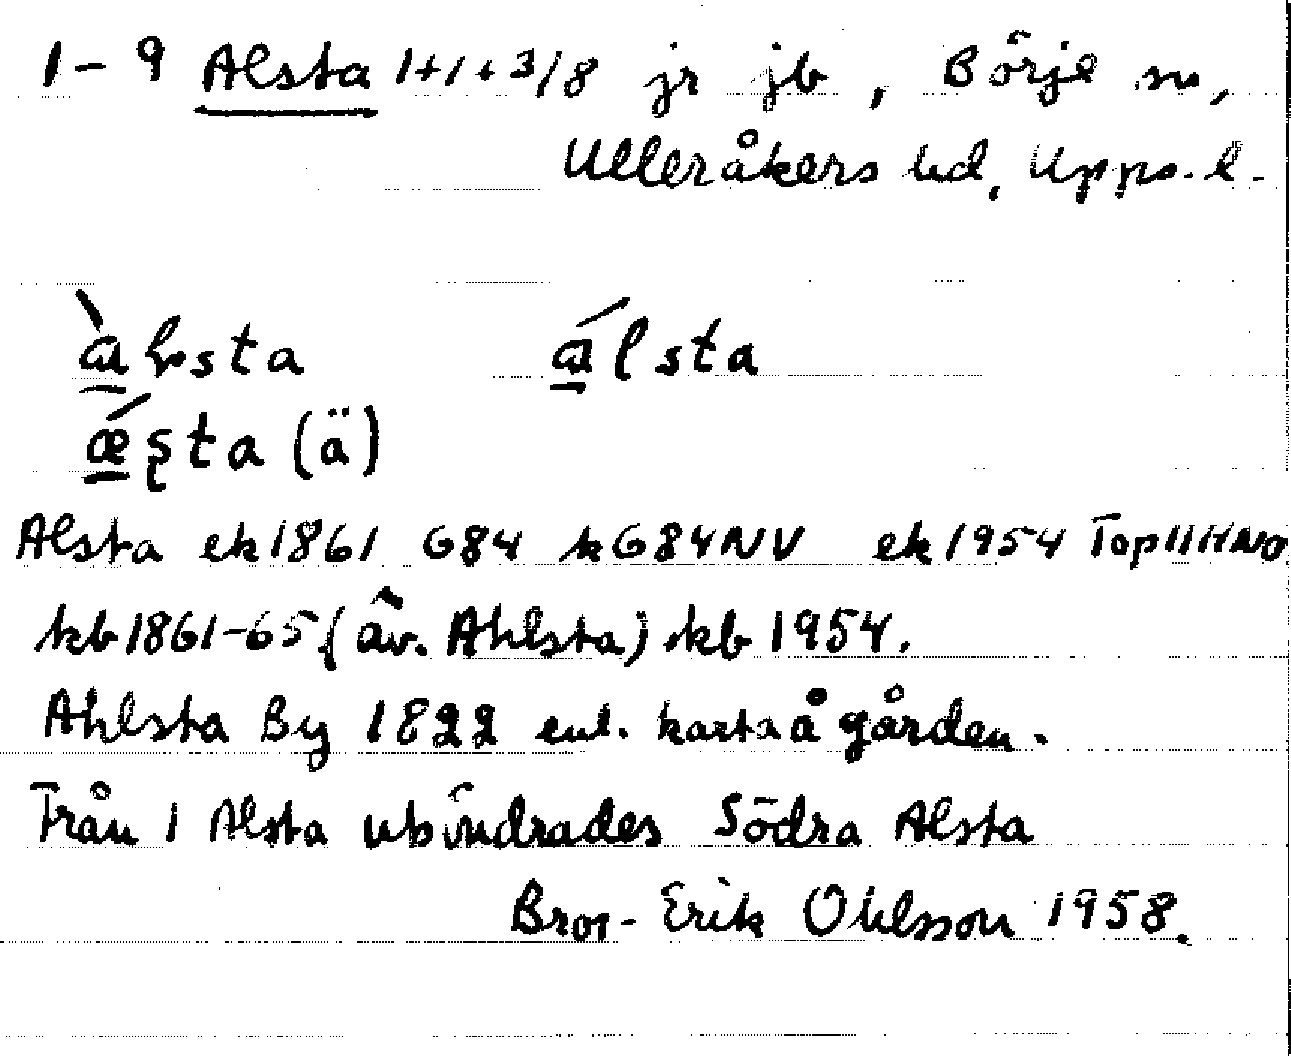 1-9 Alsta 1+1+3/8 jr jb, Börje sn,
Ulleråkers hd, Upps. l.
àlsta álsta
ǽsta (ä)
Alsta ek 1861 G84 kG84NV ek 1954 Top 11 H NO
kb 1861-65 (äv. Ahlsta) kb 1954.
Ahlsta By 1822 enl. karta å gården.
Från 1 Alsta utbindrades Södra Alsta
Bror-Erik Ohlsson 1958.